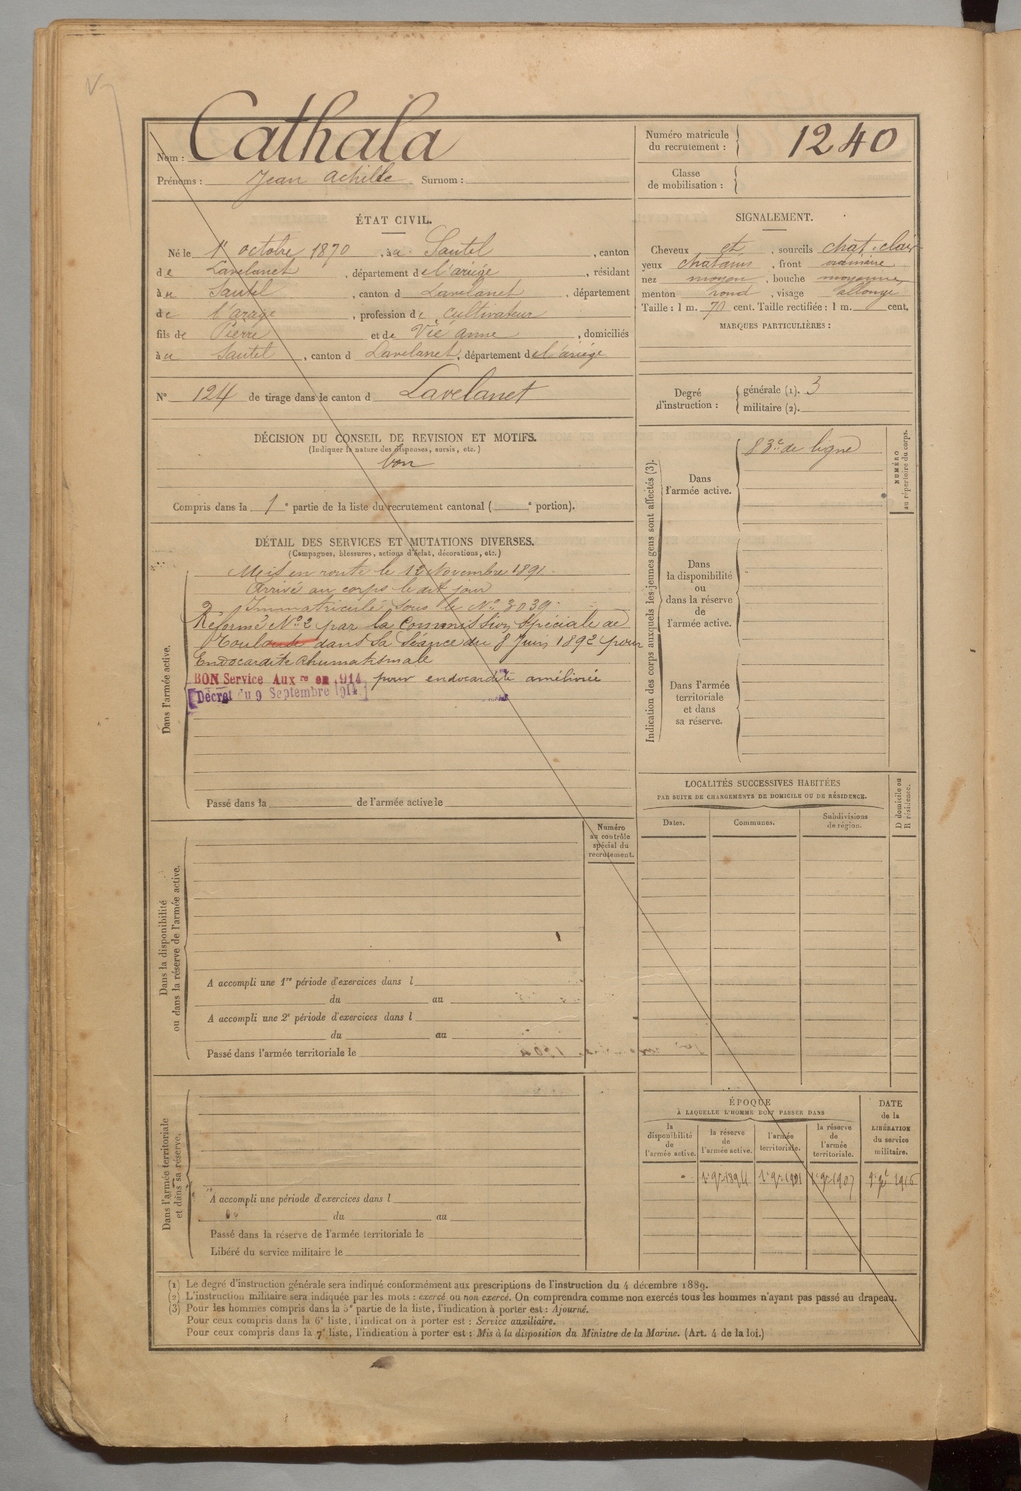 Nom : Cathala
Prénoms : Jean Achille Surnom :
Numéro matricule du recrutement : 1240
Classe de mobilisation :
ÉTAT CIVIL.
Né le 1er octobre 1870, à Sautel, canton
de Lavelanet, département de l'ariège, résidant
à Sautel, canton d Lavelanet, département
de l'ariège, profession de cultivateur
fils de Pierre et de Vié anne, domiciliés
à Sautel, canton d Lavelanet, département de l'ariège
SIGNALEMENT.
Cheveux et, sourcils chat. clair
yeux chatains, front ordinaire
nez moyen, bouche moyenne,
menton rond, visage allongé
Taille : 1 m. 70 cent. Taille rectifiée : 1 m. cent.
MARQUES PARTICULIÈRES :
No 124 de tirage dans le canton d Lavelanet
Degré d'instruction : générale (1). 3
militaire (2).
DÉCISION DU CONSEIL DE REVISION ET MOTIFS.
(Indiquer la nature des dispenses, sursis, etc.)
bon
Compris dans la 1e partie de la liste du recrutement cantonal ( e portion).
DÉTAIL DES SERVICES ET MUTATIONS DIVERSES.
(Campagnes, blessures, actions d'éclat, décorations, etc.)
Dans l'armée active.
Mis en route le 12 Novembre 1891.
Arrivé au corps le dit jour
Immatriculé sous le No 3039.
Réformé No 2 par la Commission Spéciale de
Toulouse dans sa Séance du 8 Juin 1892 pour
Endocardite rhumatismale
BON Service Auxre en 1914 pour endocardite améliorée
Décret du 9 Septembre 1914
Passé dans la de l'armée active le
Indication des corps auxquels les jeunes gens sont affectés (3).
Dans l'armée active.
83e de ligne
NUMÉRO au répertoire du corps.
Dans la disponibilité ou dans la réserve de l'armée active.
Dans l'armée territoriale et dans sa réserve.
LOCALITÉS SUCCESSIVES HABITÉES
PAR SUITE DE CHANGEMENTS DE DOMICILE OU DE RÉSIDENCE.
Dates. Communes. Subdivisions de région. D domicile ou R résidence.
Dans la disponibilité ou dans la réserve de l'armée active.
Numéro au contrôle spécial du recrutement.
A accompli une 1re période d'exercices dans l
du au
A accompli une 2e période d'exercices dans l
du au
Passé dans l'armée territoriale le
Dans l'armée territoriale et dans sa réserve.
A accompli une période d'exercices dans l
du au
Passé dans la réserve de l'armée territoriale le
Libéré du service militaire le
ÉPOQUE
À LAQUELLE L'HOMME DOIT PASSER DANS
la disponibilité de l'armée active. la réserve de l'armée active. l'armée territoriale. la réserve de l'armée territoriale.
DATE de la LIBÉRATION du service militaire.
(1) Le degré d'instruction générale sera indiqué conformément aux prescriptions de l'instruction du 4 décembre 1889.
(2) L'instruction militaire sera indiquée par les mots : exercé ou non exercé. On comprendra comme non exercés tous les hommes n'ayant pas passé au drapeau.
(3) Pour les hommes compris dans la 5e partie de la liste, l'indication à porter est : Ajourné.
Pour ceux compris dans la 6e liste, l'indication à porter est : Service auxiliaire.
Pour ceux compris dans la 7e liste, l'indication à porter est : Mis à la disposition du Ministre de la Marine. (Art. 4 de la loi.)